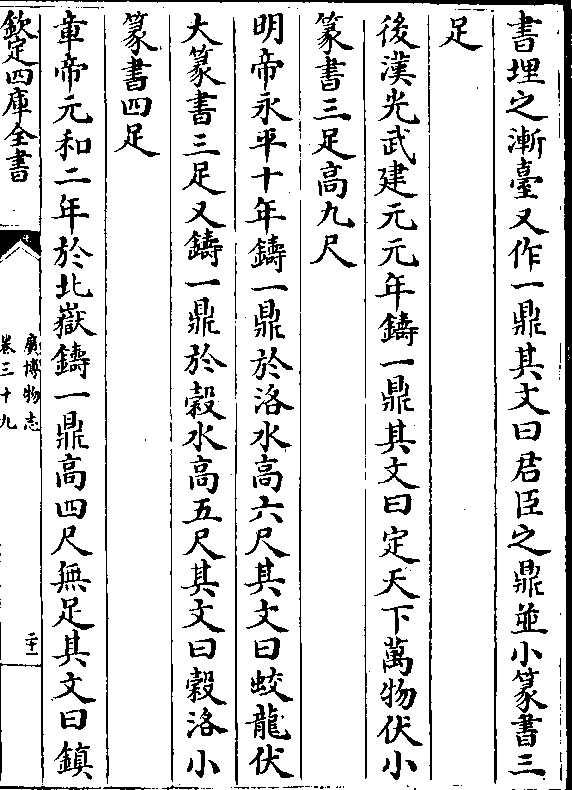 書埋之漸臺又作一鼎其文曰君臣之鼎並小篆書三
足
後漢光武建元元年鑄一鼎其文曰定天下萬物伏小
篆書三足高九尺
明帝永平十年鑄一鼎於洛水高六尺其文曰蛟龍伏
大篆書三足又鑄一鼎於穀水高五尺其文曰穀洛小
篆書四足
章帝元和二年於北嶽鑄一鼎高四尺無足其文曰鎮
欽定四庫全書
廣博物志
卷三十九
二十一